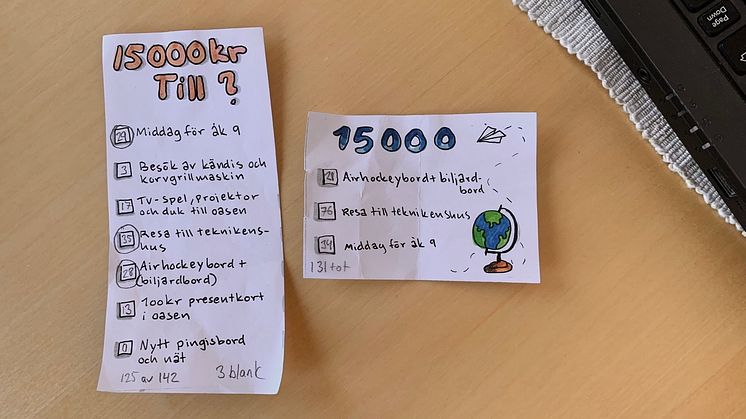 15000kr
Till?
29 Middag för åk 9
3 Besök av kändis och
korvgrillmaskin
17 TV-spel, projektor
och duk till oasen
35 Resa till teknikens-
hus
28 Airhockeybord +
(biljardbord)
13 100kr presentkort
i oasen
0 Nytt pingisbord
och nät
125 av 142 3 blank
15000
21 Airhockeybord+biljard-
bord
76 Resa till teknikenshus
34 Middag för åk 9
131 tot
Page
Down